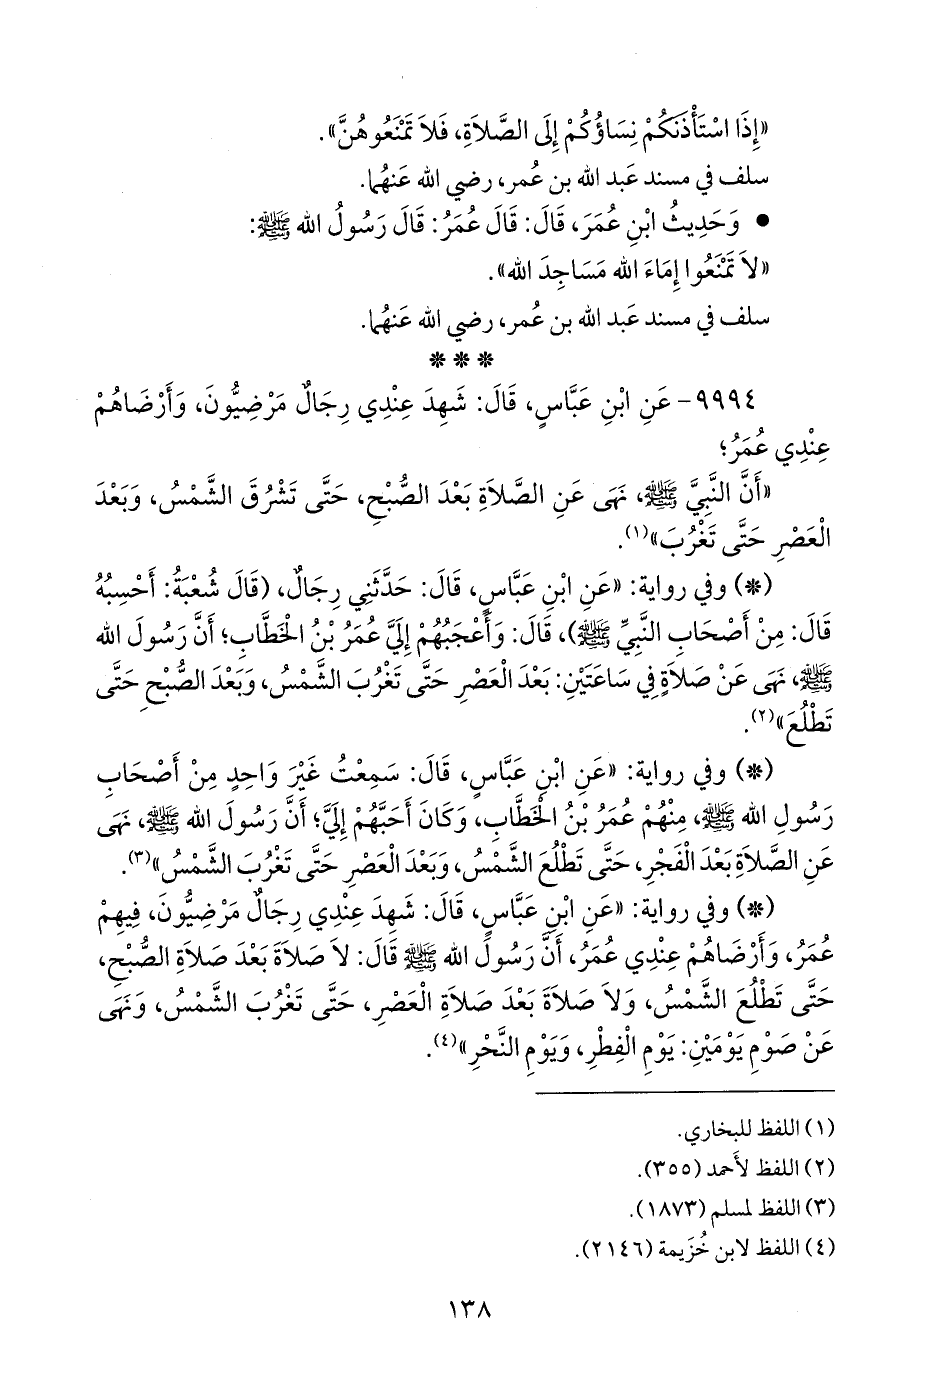 «إِذَا اسْتَأْذَنَكُمْ نِسَاؤُكُمْ إِلَى الصَّلاَةِ، فَلاَ تَمْنَعُوهُنَّ».
سلف في مسند عَبد الله بن عُمر، رضي الله عَنهُما.
● وَحَدِيثُ ابْنِ عُمَرَ، قَالَ: قَالَ عُمَرُ: قَالَ رَسُولُ الله ﷺ:
«لاَ تَمْنَعُوا إِمَاءَ الله مَسَاجِدَ الله».
سلف في مسند عَبد الله بن عُمر، رضي الله عَنهُما.
* * *
٩٩٩٤- عَنِ ابْنِ عَبَّاسٍ، قَالَ: شَهِدَ عِنْدِي رِجَالٌ مَرْضِيُّونَ، وَأَرْضَاهُمْ
عِنْدِي عُمَرُ؛
«أَنَّ النَّبِيَّ ﷺ، نَهَى عَنِ الصَّلاَةِ بَعْدَ الصُّبْحِ، حَتَّى تَشْرُقَ الشَّمْسُ، وَبَعْدَ
الْعَصْرِ حَتَّى تَغْرُبَ»(١).
(*) وفي رواية: «عَنِ ابْنِ عَبَّاسٍ، قَالَ: حَدَّثَنِي رِجَالٌ، (قَالَ شُعْبَةُ: أَحْسِبُهُ
قَالَ: مِنْ أَصْحَابِ النَّبِيِّ ﷺ)، قَالَ: وَأَعْجَبُهُمْ إِلَيَّ عُمَرُ بْنُ الْخَطَّابِ؛ أَنَّ رَسُولَ الله
ﷺ، نَهَى عَنْ صَلاَةٍ فِي سَاعَتَيْنِ: بَعْدَ الْعَصْرِ حَتَّى تَغْرُبَ الشَّمْسُ، وَبَعْدَ الصُّبْحِ حَتَّى
تَطْلُعَ»(٢).
(*) وفي رواية: «عَنِ ابْنِ عَبَّاسٍ، قَالَ: سَمِعْتُ غَيْرَ وَاحِدٍ مِنْ أَصْحَابِ
رَسُولِ الله ﷺ، مِنْهُمْ عُمَرُ بْنُ الْخَطَّابِ، وَكَانَ أَحَبَّهُمْ إِلَيَّ؛ أَنَّ رَسُولَ الله ﷺ، نَهَى
عَنِ الصَّلاَةِ بَعْدَ الْفَجْرِ، حَتَّى تَطْلُعَ الشَّمْسُ، وَبَعْدَ الْعَصْرِ حَتَّى تَغْرُبَ الشَّمْسُ»(٣).
(*) وفي رواية: «عَنِ ابْنِ عَبَّاسٍ، قَالَ: شَهِدَ عِنْدِي رِجَالٌ مَرْضِيُّونَ، فِيهِمْ
عُمَرُ، وَأَرْضَاهُمْ عِنْدِي عُمَرُ، أَنَّ رَسُولَ الله ﷺ قَالَ: لاَ صَلاَةَ بَعْدَ صَلاَةِ الصُّبْحِ،
حَتَّى تَطْلُعَ الشَّمْسُ، وَلاَ صَلاَةَ بَعْدَ صَلاَةِ الْعَصْرِ، حَتَّى تَغْرُبَ الشَّمْسُ، وَنَهَى
عَنْ صَوْمِ يَوْمَيْنِ: يَوْمِ الْفِطْرِ، وَيَوْمِ النَّحْرِ»(٤).
(١) اللفظ للبخاري.
(٢) اللفظ لأَحمد (٣٥٥).
(٣) اللفظ لمسلم (١٨٧٣).
(٤) اللفظ لابن خُزَيمة (٢١٤٦).
١٣٨